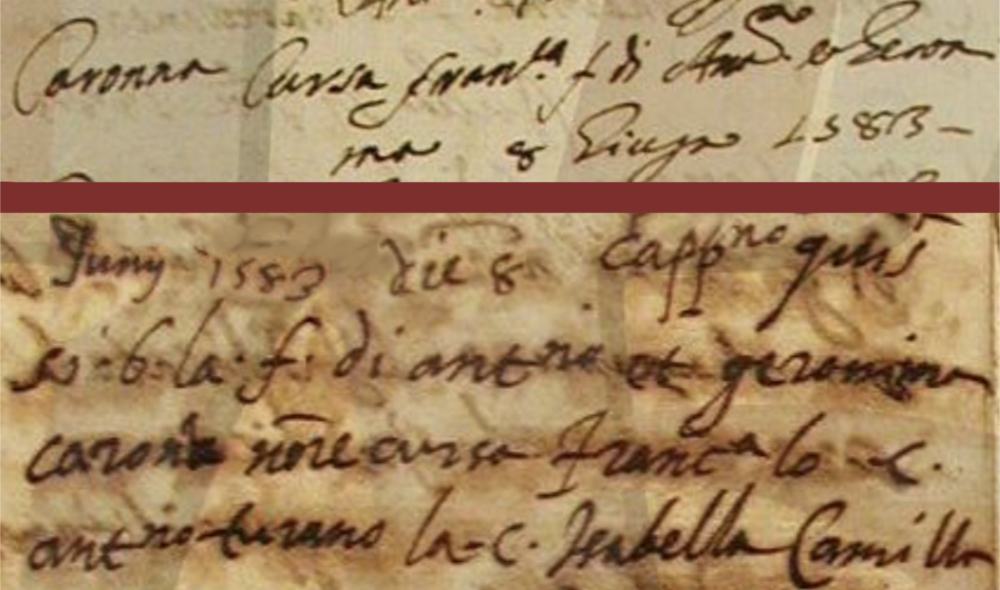 Caronna Cursa Fran.ca f di Ant.o et Geron
ma 8 Giugno 1583 -
Juny 1583 die 8 Capp.no quis
si · b · la · f · di ant.no et geronima
carona nōie cursa franc.a lo - c.
ant.no turano la - c. Isabella Camilla